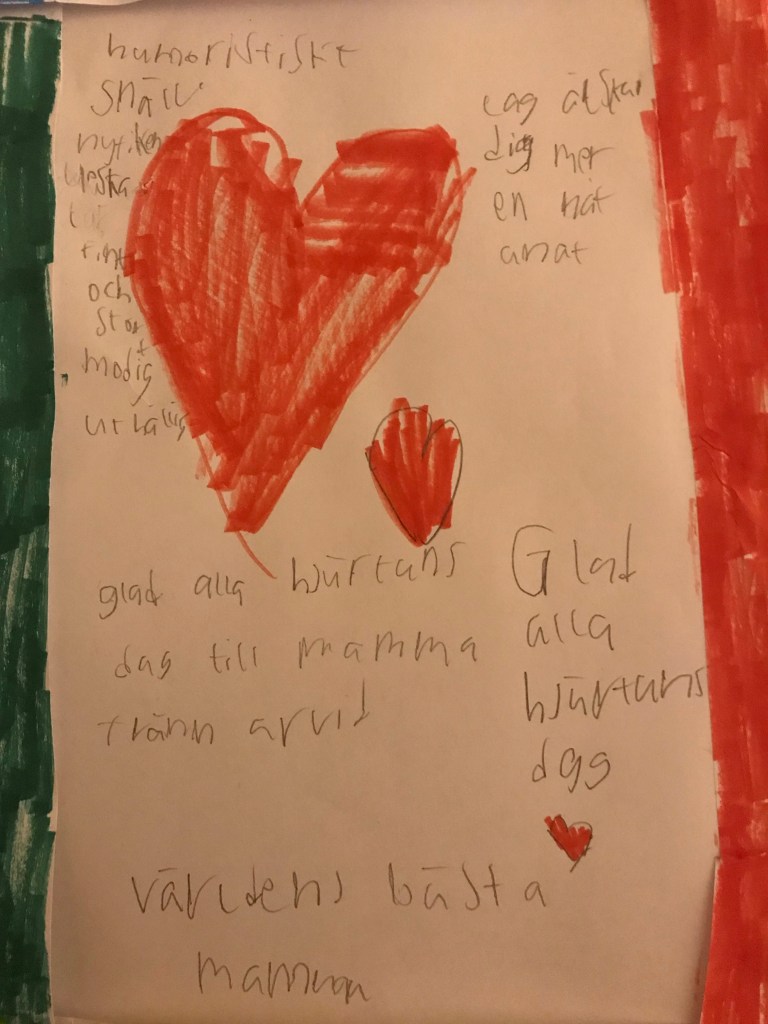 humoristiskt
snäll
nyfiken
och
stor
modig
uthållig
Jag älskar
dig mer
en nåt
anat
glad alla hjärtans
dag till mamma
från arvid
Glad
alla
hjärtans
dag
världens bästa
mamma